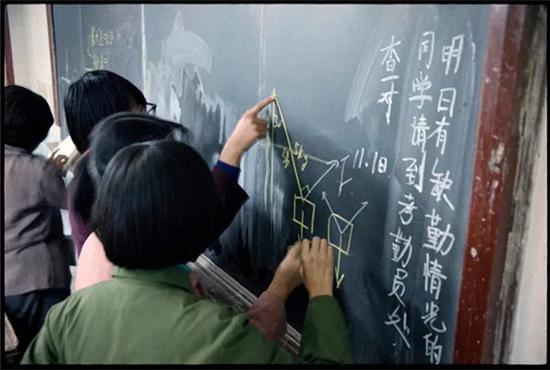 明日有缺勤情况的
同学请到考勤员处
查对
11.18